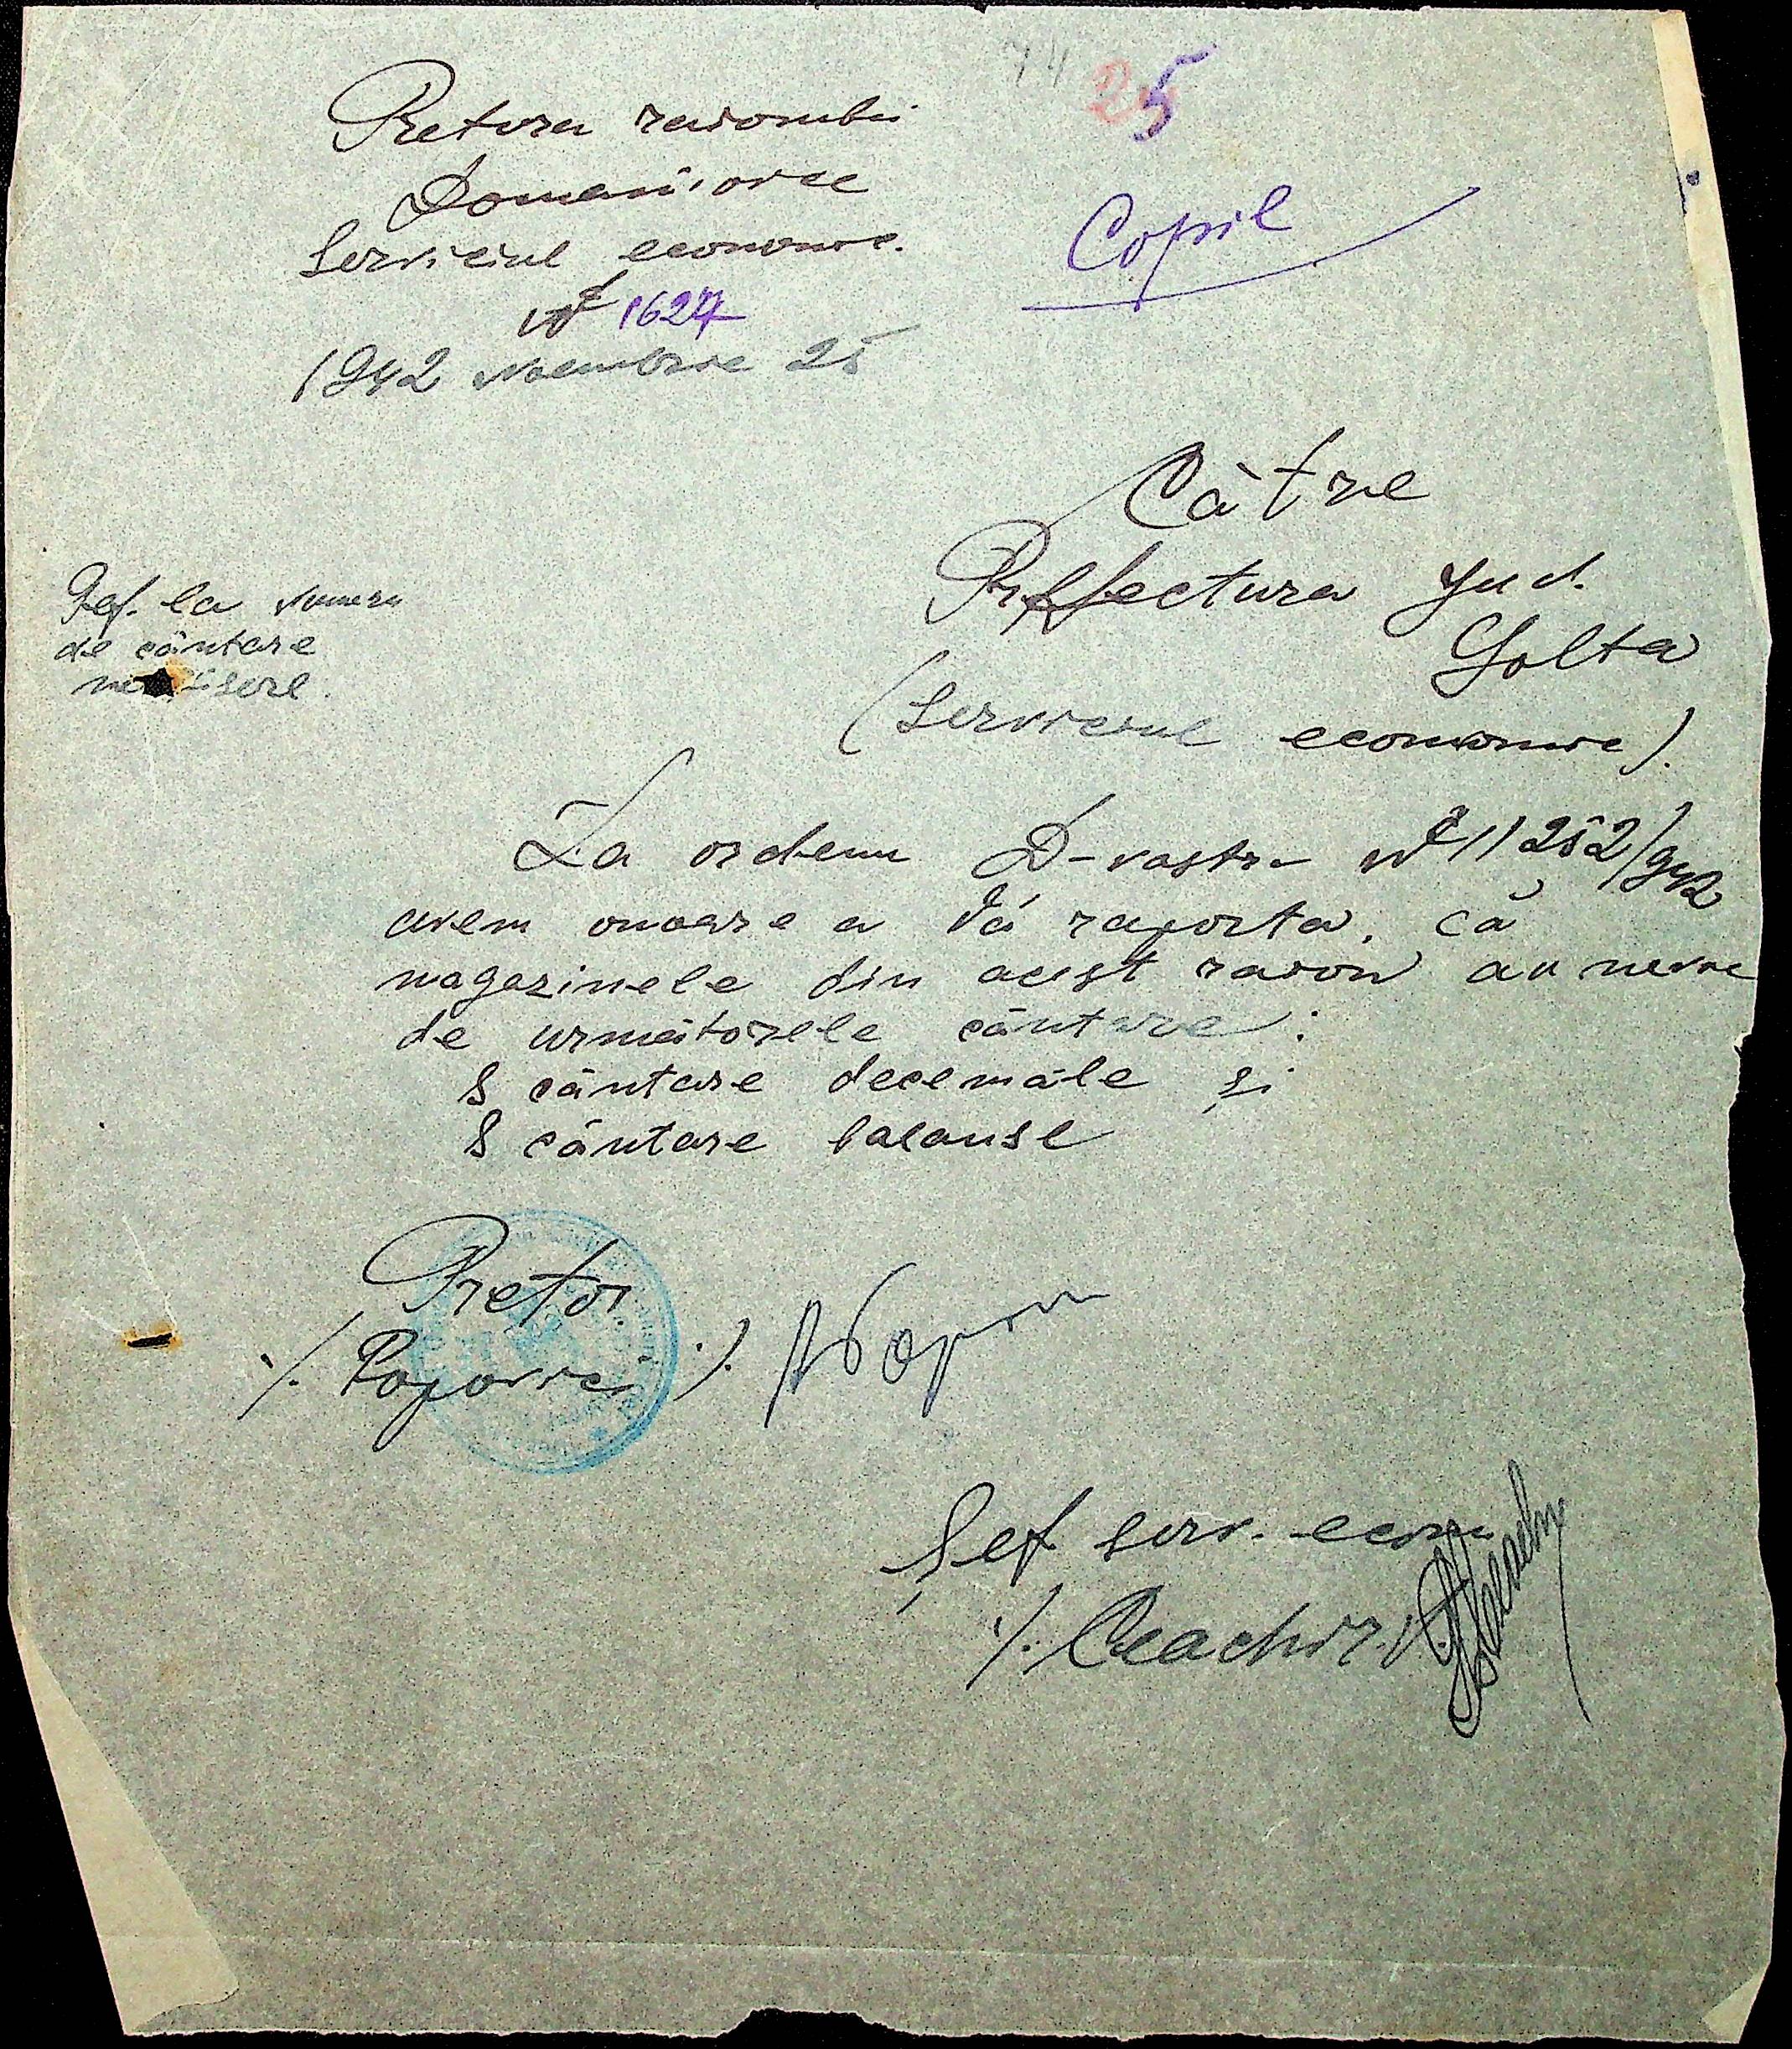 25
Pretura raionului
Domaniovce
Serviciul economic.
№ 1627
1942 Noembrie 25
Copil
Către
Preffectura Jud.
Golta
(Serviciul economic).
Ref. la numeru
de cântare
La ordenu D-vostra № 11252/942
avem onoare a Vă raporta, că
magazinele din acest raion au nevoe
de următorele cântare:
8 cântare decemale și
8 cântare balanse
Pretor
·/. Popovici ·/.
Șef serv. econ
·/. Ceachir.